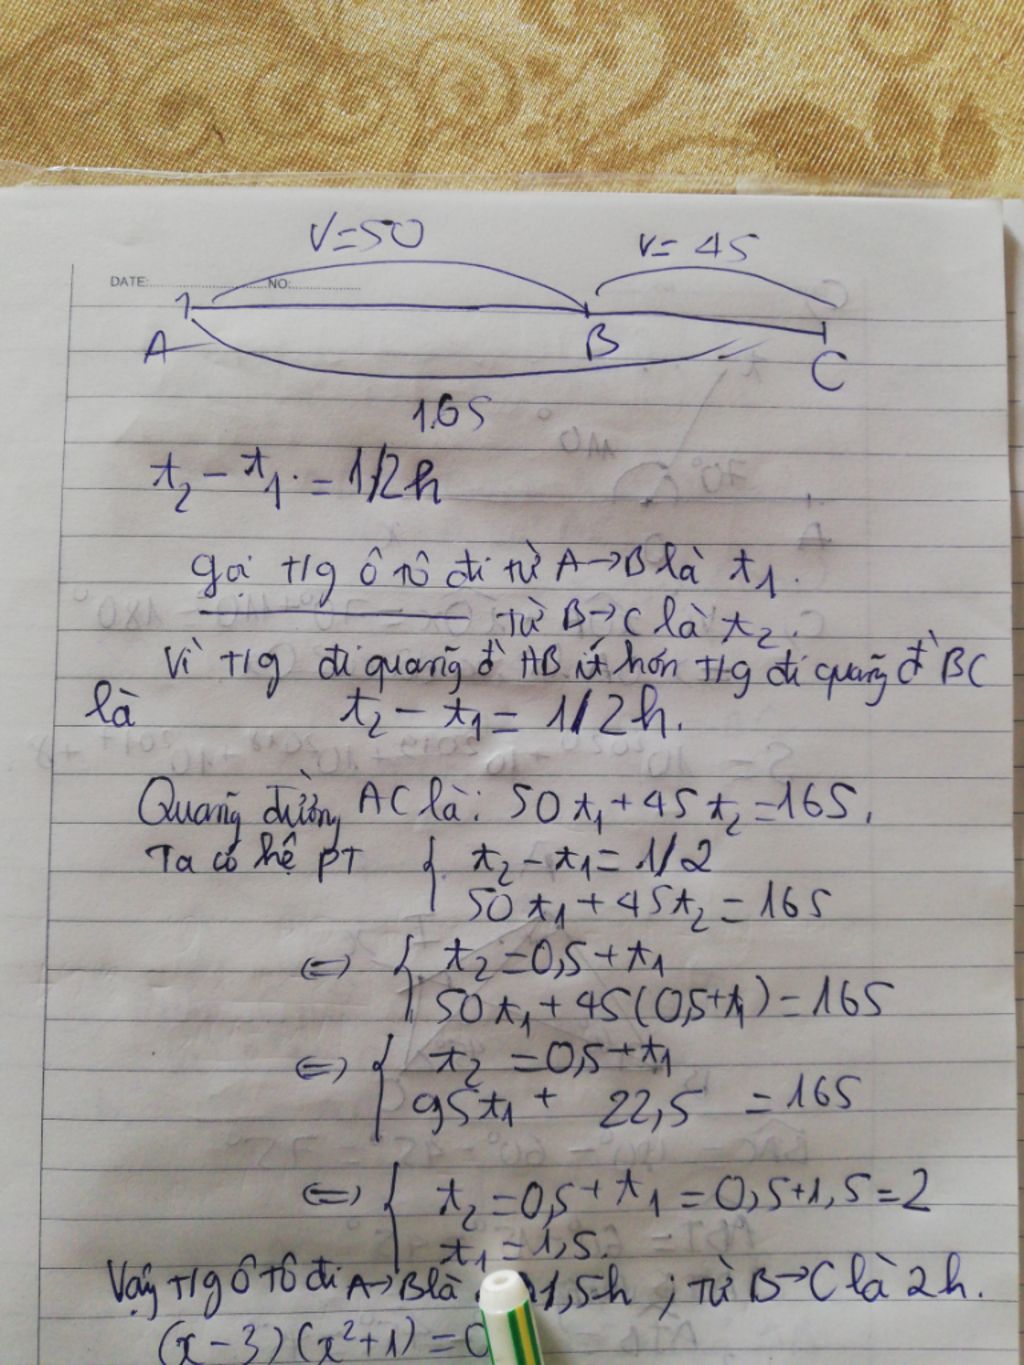 V=50
v= 45
DATE: NO:
A
B
C
165
t₂ - t₁ = 1/2h
gọi t/g ô tô đi từ A→B là t₁.
từ B→C là t₂.
Vì t/g đi quãng đ̀ AB ít hơn t/g đi quãng đ̀ BC
là t₂ - t₁ = 1/2h.
Quãng đường AC là: 50t₁ + 45t₂ = 165.
Ta có hệ PT { t₂ - t₁ = 1/2
50t₁ + 45t₂ = 165
⇔ { t₂ = 0,5 + t₁
50t₁ + 45(0,5+t₁) = 165
⇔ { t₂ = 0,5 + t₁
95t₁ + 22,5 = 165
⇔ { t₂ = 0,5 + t₁ = 0,5+1,5 = 2
t₁ = 1,5.
Vậy t/g ô tô đi A→B là 1,5h ; từ B→C là 2h.
(x-3)(x²+1) = 0